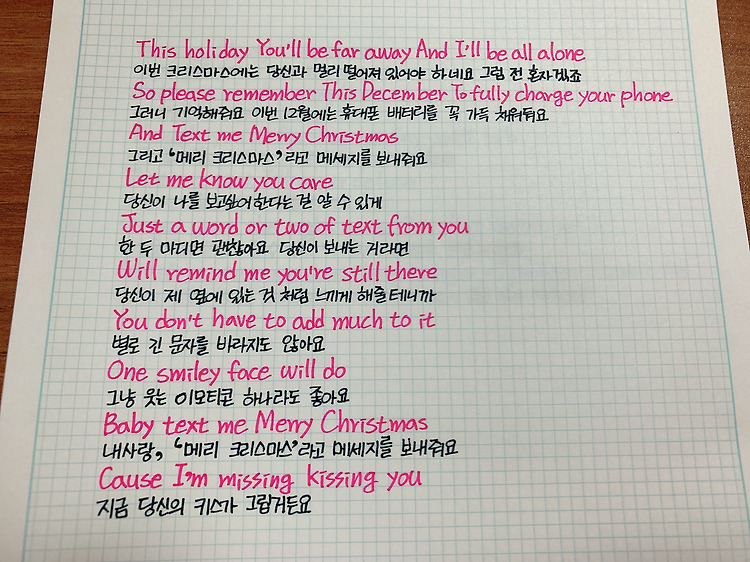 This holiday You'll be far away And I'll be all alone
이번 크리스마스에는 당신과 멀리 떨어져 있어야 하네요 그럼 전 혼자겠죠
So please remember This December To fully charge your phone
그러니 기억해줘요 이번 12월에는 휴대폰 배터리를 꼭 가득 채워둬요
And Text me Merry Christmas
그리고 '메리 크리스마스'라고 메세지를 보내줘요
Let me know you care
당신이 나를 보고싶어한다는 걸 알 수 있게
Just a word or two of text from you
한 두 마디면 괜찮아요 당신이 보내는 거라면
Will remind me you're still there
당신이 제 옆에 있는 것 처럼 느끼게 해줄테니까
You don't have to add much to it
별로 긴 문자를 바라지도 않아요
One smiley face will do
그냥 웃는 이모티콘 하나라도 좋아요
Baby text me Merry Christmas
내사랑, '메리 크리스마스'라고 메세지를 보내줘요
Cause I'm missing kissing you
지금 당신의 키스가 그립거든요